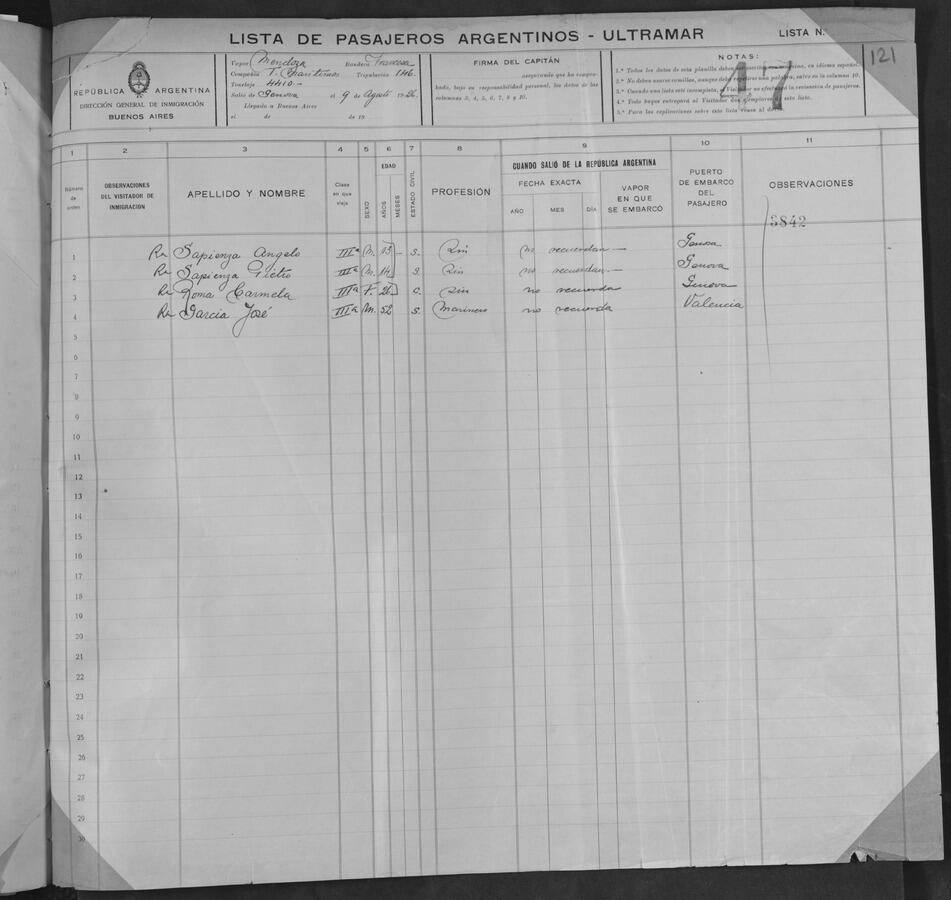 LISTA DE PASAJEROS ARGENTINOS - ULTRAMAR
LISTA N.
121
REPÚBLICA ARGENTINA
DIRECCIÓN GENERAL DE INMIGRACIÓN
BUENOS AIRES
Vapor Mendoza Bandera Francesa
Compañía T. Maritimos Tripulación 146.
Tonelaje 4410.-
Salió de Genova el 9 de Agosto 1926.
Llegado a Buenos Aires
el de de 19
FIRMA DEL CAPITÁN
asegurando que ha compro-
bado, bajo su responsabilidad personal, los datos de las
columnas 3, 4, 5, 6, 7, 8, 9 y 10.
NOTAS:
1.ª Todos los datos de esta planilla deben en idioma español.
2.ª No deben usarse comillas, aunque deba repetirse una palabra, salvo en la columna 10.
3.ª Cuando una lista esté incompleta, el Visitador no efectuará la revisación de pasajeros.
4.ª Todo buque entregará al Visitador dos ejemplares de esta lista.
5.ª Para las explicaciones sobre esta lista véase al
47
1 2 3 4 5 6 7 8 9 10 11
Número de orden
OBSERVACIONES DEL VISITADOR DE INMIGRACIÓN
APELLIDO Y NOMBRE
Clase en que viaja
SEXO
EDAD
AÑOS
MESES
ESTADO CIVIL
PROFESIÓN
CUANDO SALIÓ DE LA REPÚBLICA ARGENTINA
FECHA EXACTA
AÑO MES DÍA
VAPOR EN QUE SE EMBARCÓ
PUERTO DE EMBARCO DEL PASAJERO
OBSERVACIONES
3842
1 Sapienza Angelo IIIª M. 13 - S. Sin no recuerdan - Genova
2 Sapienza Pietro IIIª M. 14 S. Sin no recuerdan - Genova
3 Roma Carmela IIIª F. 26 C. Sin no recuerda Genova
4 Garcia José IIIª M. 52 S. Marinero no recuerda Valencia
5
6
7
8
9
10
11
12
13
14
15
16
17
18
19
20
21
22
23
24
25
26
27
28
29
30